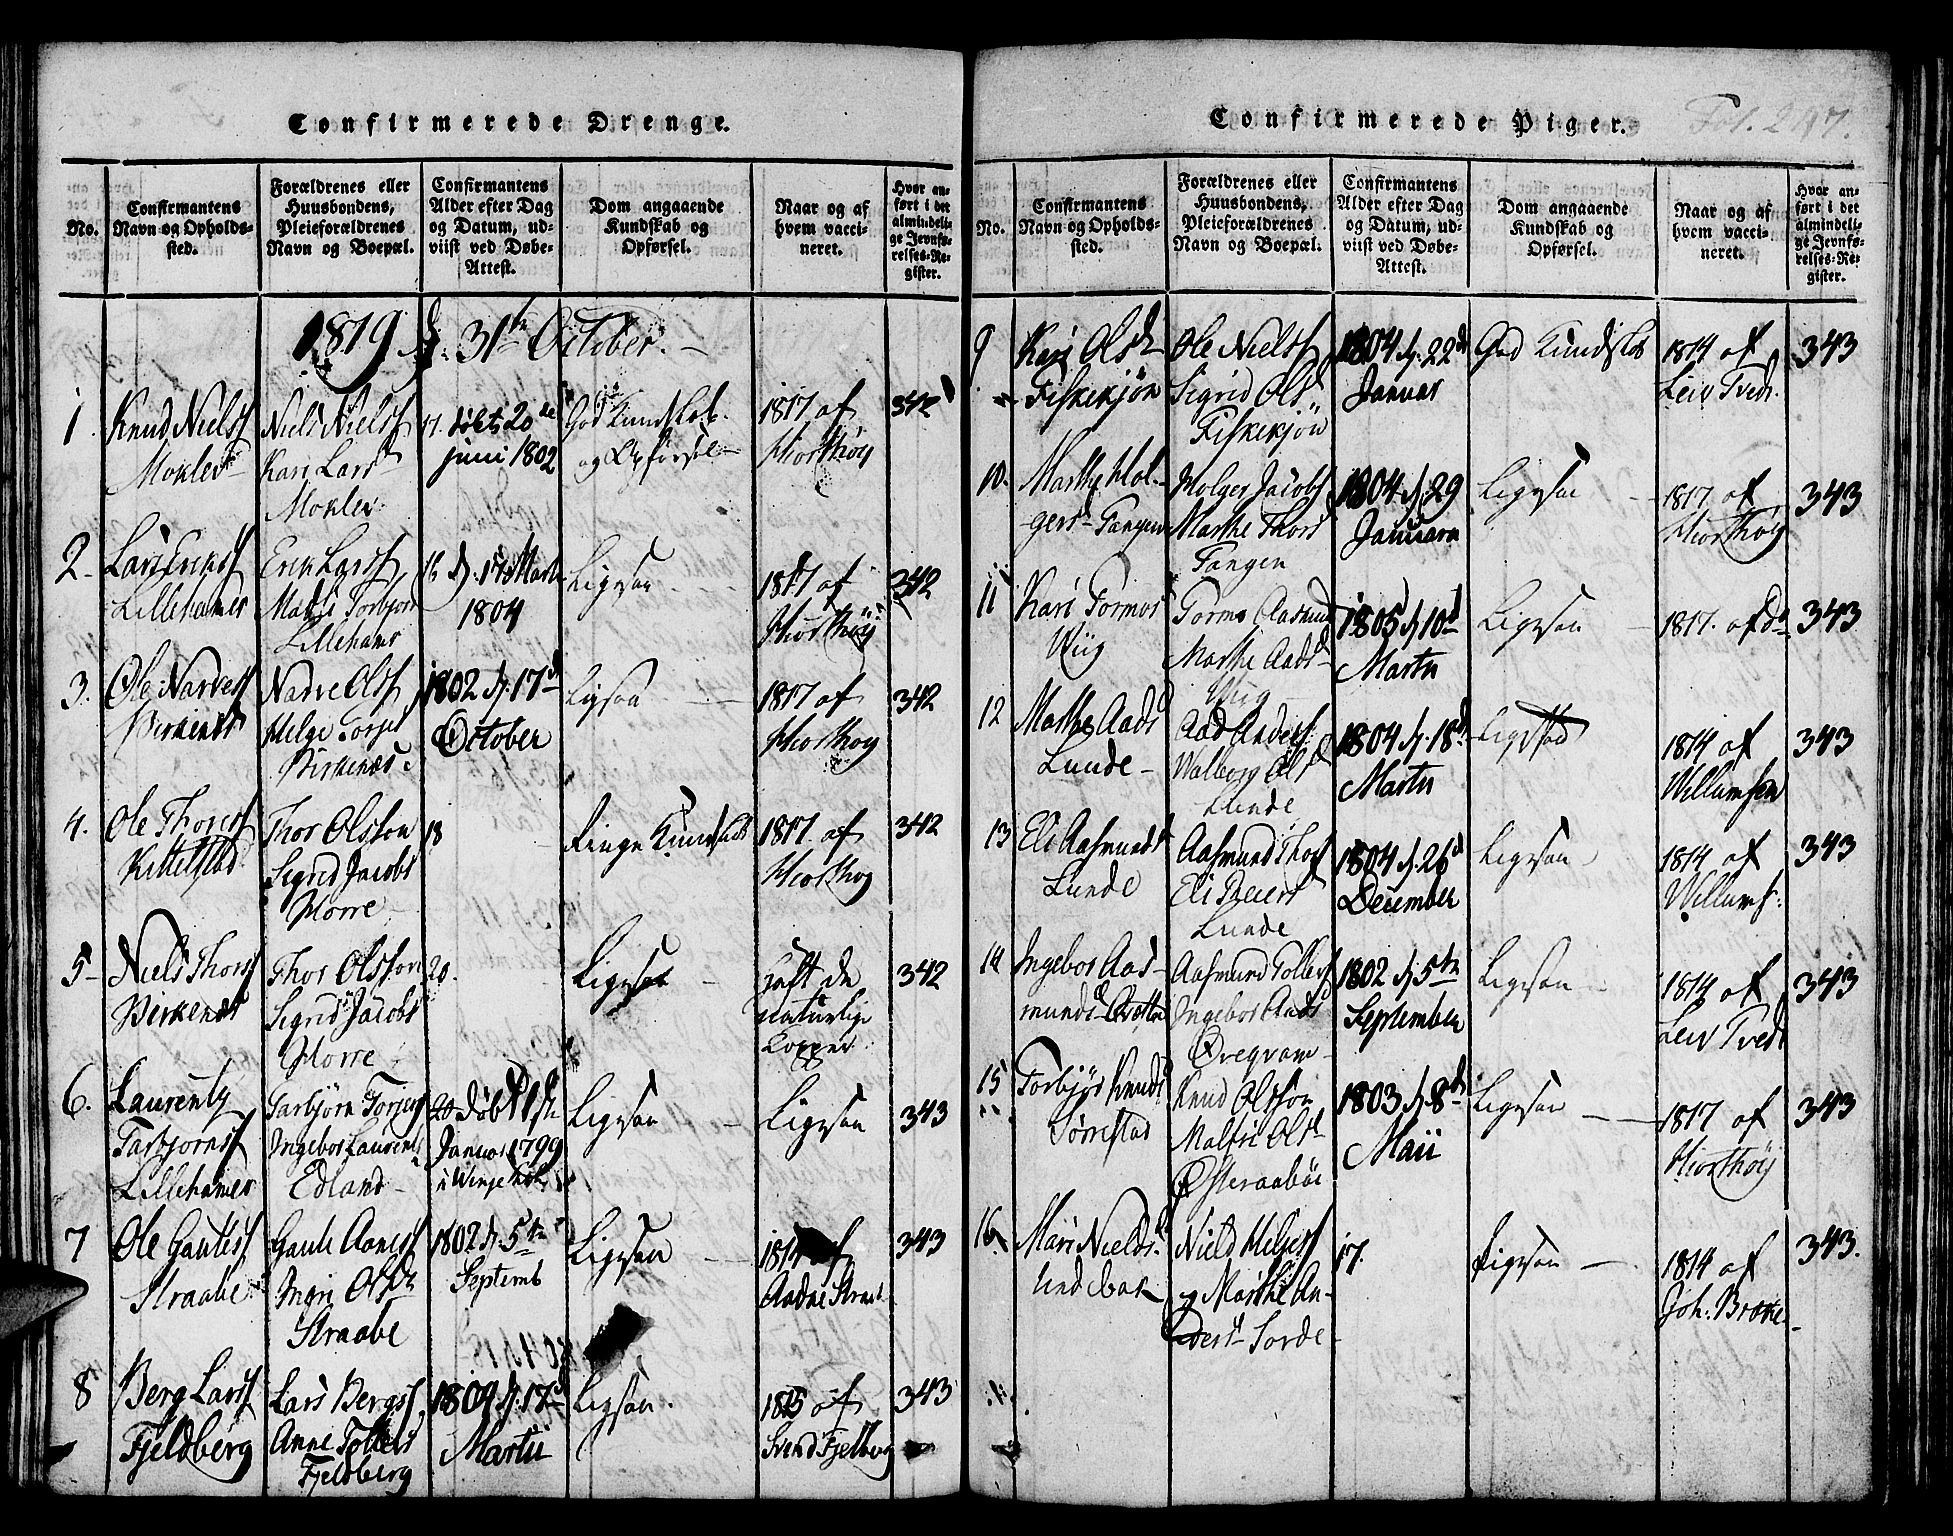 Confirmerede Drenge.
No.
Confirmantens
Navn og Opholds-
sted.
Forældrenes eller
Huusbondens,
Pleieforældrenes
Navn og Boepæl.
Confirmantens
Alder efter Dag
og Datum, ud-
viist ved Døbe-
Attest.
Dom angaaende
Kundskab og
Opførsel.
Naar og af
hvem vacci-
neret.
Hvor an-
ført i det
almindeli-
ge Jevnfø-
relses-Re-
gister.
1819 d. 31te October.
1.
Knud Niels
Moklev
Niels Niels
Kari Lars
Moklev
17. døbt 20de
juni 1802
God Kundskab
og Opførsel
1817 af
Hiorthøy
342
2
Lars Eriks
Lillehamer
Erik Lars
Torbjørn
Lillehamer
16 d. 17 Marti
1804
Ligesaa
1817 af
Hiorthøy
342
3.
Ole Narves
Birkenes
Narve Ols
Helge Torjus
Birkenes
1802 d. 17d
October
Ligesaa
1817 af
Hiorthøy
342
4.
Ole Thores
Kittelstad
Thor Olsson
Sigrid Jacobs
Horre
18
Ringe Kundskab
1817 af
Hiorthøy
342
5
Niels Thors
Birkenes
Thor Olsson
Sigrid Jacobs
Horre
20.
Ligesaa
haft de
naturlige
Kopper
342
6.
Laurents
Tarbjørns
Lillehamer
Tarbjørn Torjus
Ingebor Laurents
Edland
20 døbt 1ste
Januar 1799
i Winje
Ligesaa
Ligesaa
343
7
Ole Gautes
Straabe
Gaute Aanes
Ingri Olsd
Straabe
1802 d. 5te
Septemb
Ligesaa
1814 af
Aadne Straab
343
8
Berg Lars
Fjeldberg
Lars Bergs
Anne Tollefs
Fjeldberg
1804 d. 17d
Martii
Ligesaa
1815 af
Svend Fjelberg
343
Confirmerede Piger.
Fol. 247.
No.
Confirmantens
Navn og Opholds-
sted.
Forældrenes eller
Huusbondens,
Pleieforældrenes
Navn og Boepæl.
Confirmantens
Alder efter Dag
og Datum, ud-
viist ved Døbe-
Attest.
Dom angaaende
Kundskab og
Opførsel.
Naar og af
hvem vacci-
neret.
Hvor an-
ført i det
almindeli-
ge Jevnfø-
relses-Re-
gister.
9
Kari Olsd
Fiskekjøn
Ole Niels
Sigrid Olsd
Fiskekjøn
1804 d. 22d
Januar
God Kundskab
1814 af
Leiv Tvedt
343
10.
Marthe Hol-
gers Tangen
Holger Jacobs
Marthe Thors
Tangen
1804 d. 29
Januari
Ligesaa
1817 af
Hiorthøy
343
11
Kari Tormos
Wiig
Tormo Aasmund
Marthe Aads
Wiig
1805 d. 10d
Martii
Ligesaa
1817. af Do
343
12
Marthe Aads
Lunde
Aad Anders
Walborg Olsd
Lunde
1804 d. 18d
Martii
Ligesaa
1814 af
Willumsen
343
13
Eli Aasmunds
Lunde
Aasmund Thors
Eli Peders
Lunde
1804 d. 26d
December
Ligesaa
1814 af
Willums
343
14
Ingebor Aas-
munds
Aasmund Tollefs
Ingebor Aads
Øvreqvam
1802 d. 5te
September
Ligesaa
1814 af
Leiv Tvedt
343
15
Torbjør Knuds
Tørrestad
Knud Olsson
Malfri Olsd
Østeraabøe
1803 d. 8d
Maii
Ligesaa
1817 af
Hiorthøy
343
16
Mari Nields
Lindebak
Nield Helges
og Marthe An-
ders Sorde
17.
Ligesaa
1814 af
Joh. Brokke
343.